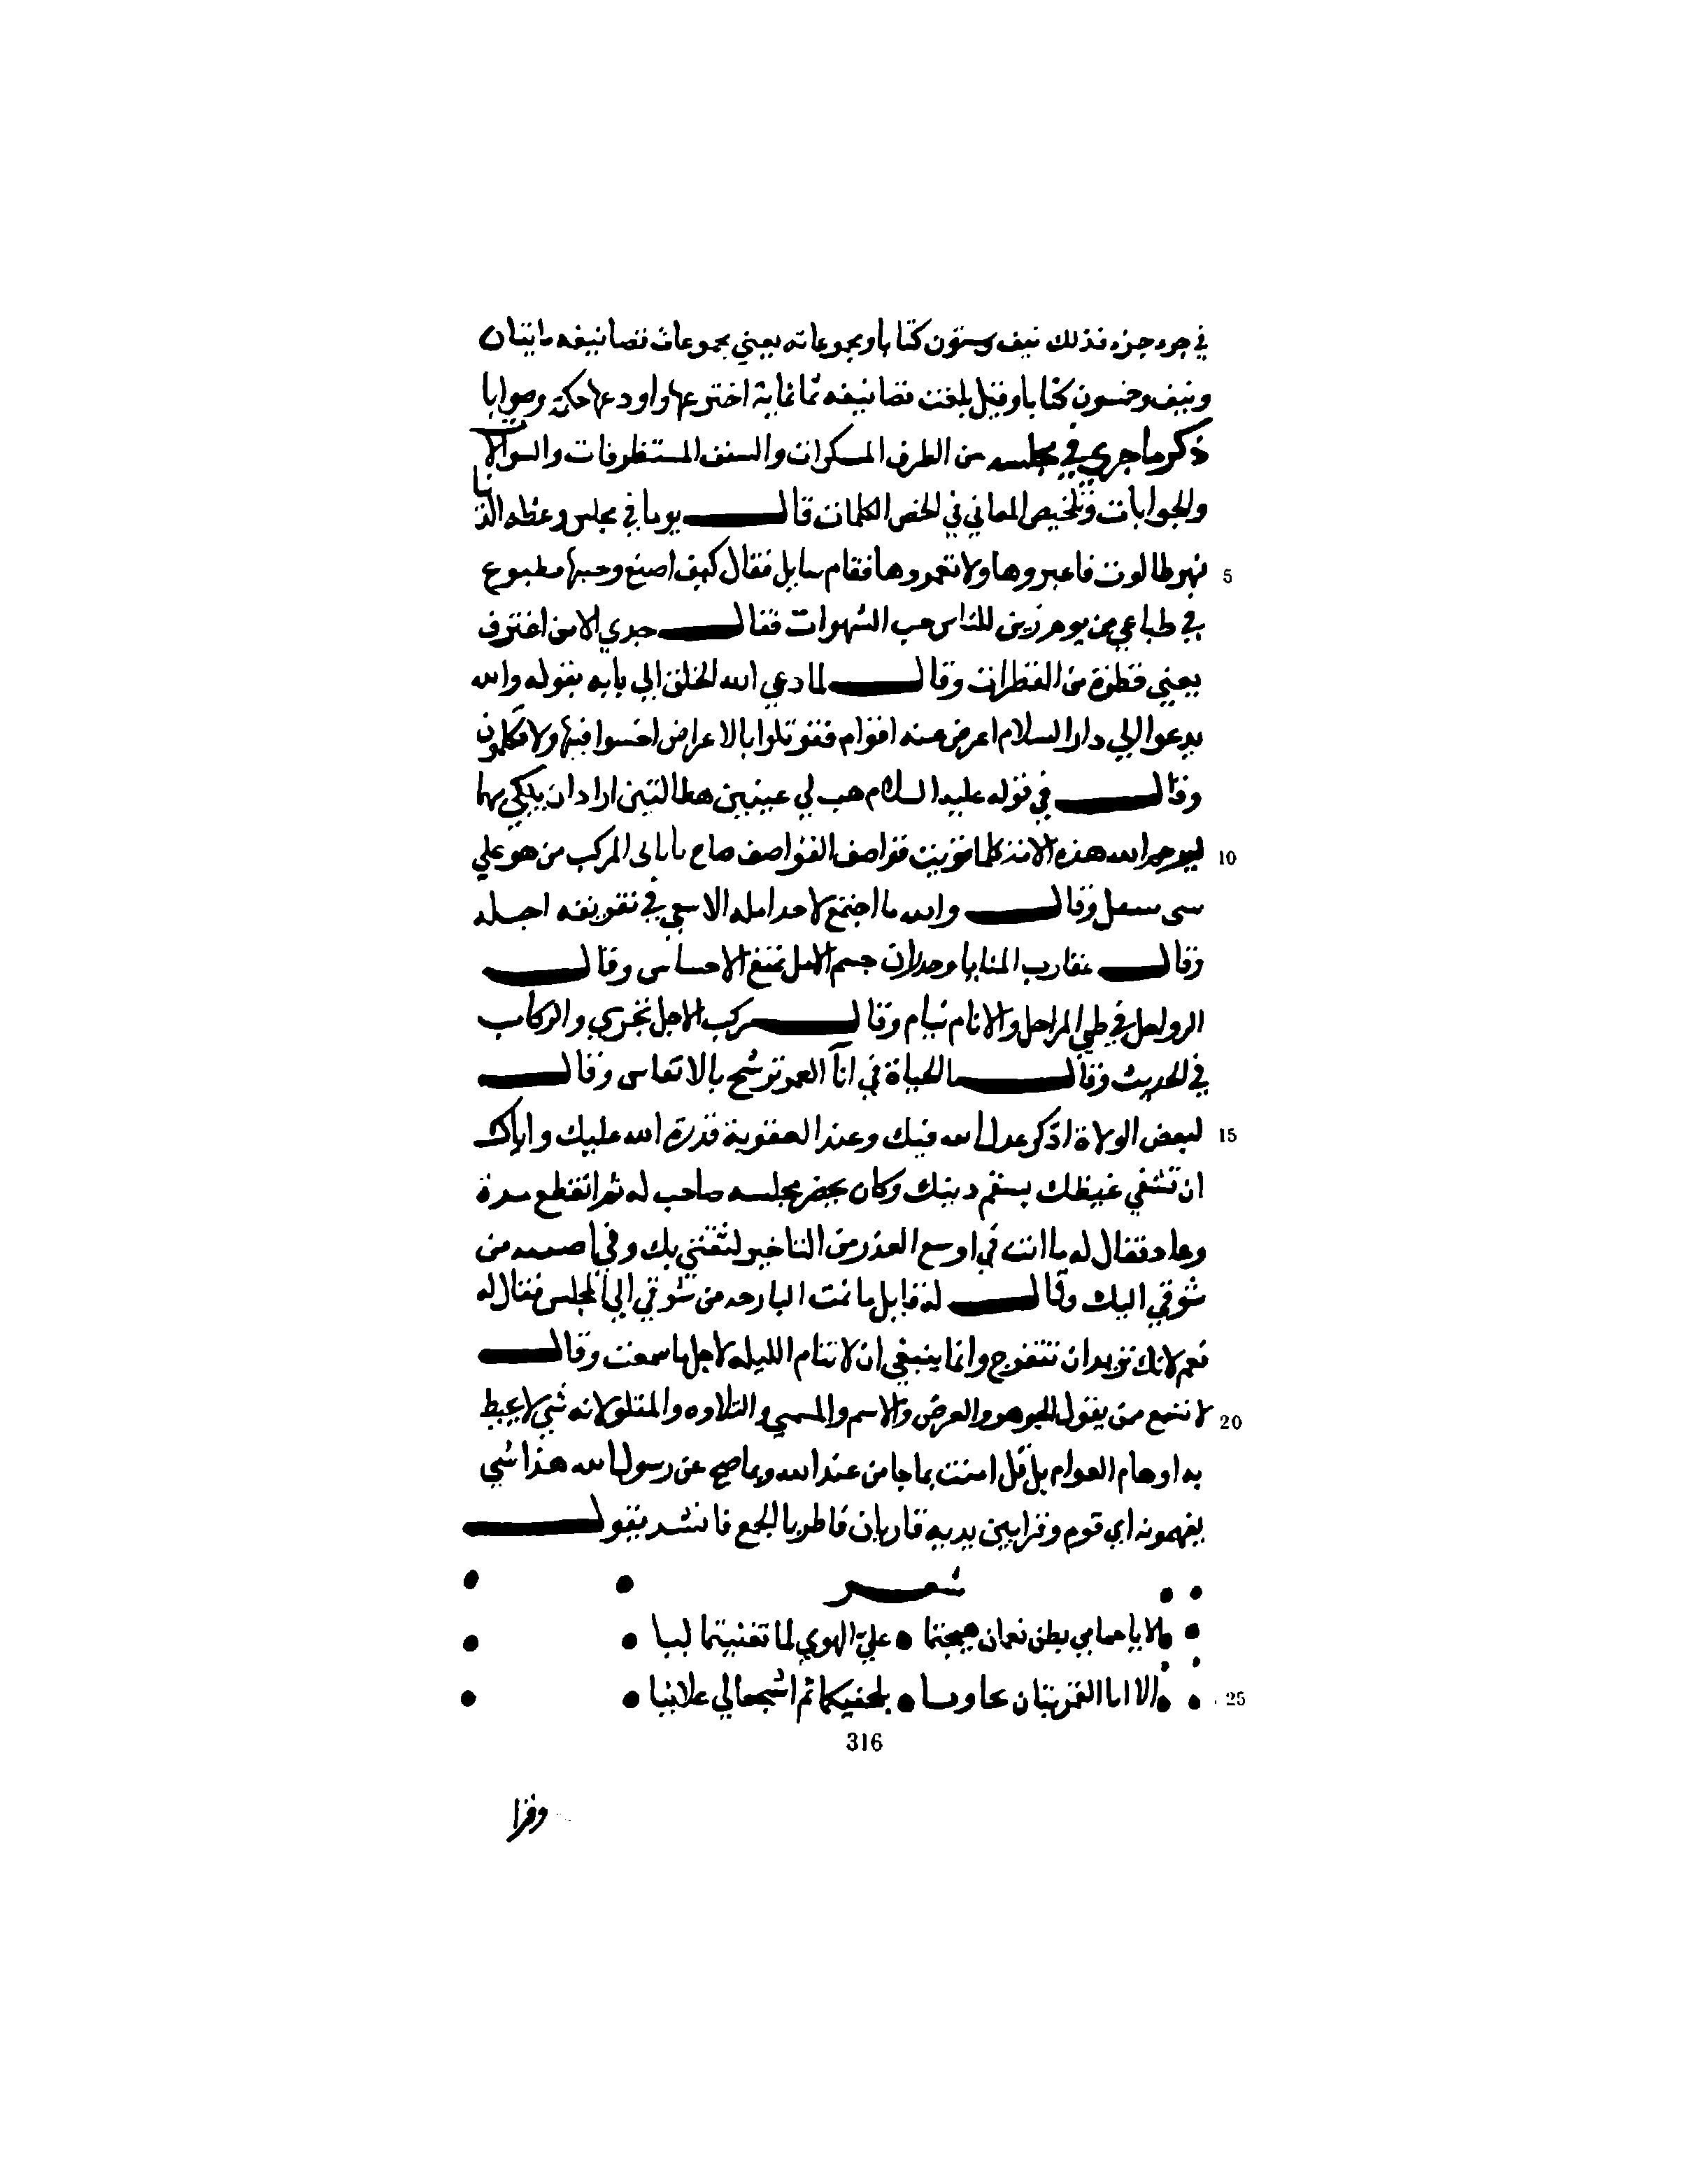 في جزء جزء فذلك نيف وستون كتابا ومجموعاته يعني مجموعات تصانيفه مايتان
ونيف وخمسون كتابا وقيل بلغت تصانيفه ثمانماية اخترعها واودعها حكمة وصوابا
ذكر ما جري في مجلسه من الطرف المسكرات والسنف المستظرفات والسوالا
والجوابات وتلخيص المعاني في الخص الكلمات قال يوما في مجلس وعظه الدنيا
5 نهر طالوت فاعبروها ولا تعمروها فقام سايل فقال كيف اصنع وحبها مطبوع
في طباعي من يوم زين للناس حب الشهوات فقال جدي الا من اغترف
يعني قطرة من القطرات وقال لما دعي الله الخلق الي بابه بقوله والله
يدعوا الي دار السلام اعرض عنه اقوام فقوتلوا بالاعراض اخسوا فيها ولا تكلمون
وقال في قوله عليه السلام هب لي عينين هطالتين اراد ان يبكي بهما
10 ليرحم الله هذه الامة كلما قويت قواصف العواصف صاح بابي المركب من هو علي
وقال والله ما اجتمع لاحد امله الا سعي في تفريقه اجله
وقال عقارب المنايا وخدران جسم الامل تمنع الاحساس وقال
الرواحل في طي المراحل والانام نيام وقال مركب الاجل تجري والركاب
في الحديث وقال ما الحياة في انآ العمر ترشح بالانفاس وقال
15 لبعض الولاة اذكر عدل الله فيك وعند العقوبة قدرة الله عليك واياك
ان تشفي غيظك بسقم دينك وكان يحضر مجلسه صاحب له ثم انقطع مدة
وعاد فقال له ما انت في اوسع العذر من التاخير لثقتي بك وفي من
شوقي اليك وقال له قايل ما نمت البارحه من شوقي الي المجلس فقال له
نعم لانك تريد ان تتفرج وانما ينبغي ان لا تنام الليله لاجل ما سمعت وقال
20 لا تسمع ممن يقول الجوهر والعرض والاسم والمسمي والتلاوه والمتلو لانه شي لا يحيط
به اوهام العوام بل قل امنت بما جا من عند الله وبما صح عن رسول الله هذا شي
يفهمونه اي قوم وقرا بين يديه قاريان فاطربا الجمع فانشد يقول
شعر
الا يا حمامي بطن نعمان هجتما علي الهوي لما تغنيتما ليا
25 الا ايها القمريتان تجاوبا بلحنيكما ثم اسجعا لي علانيا
316
وقرا